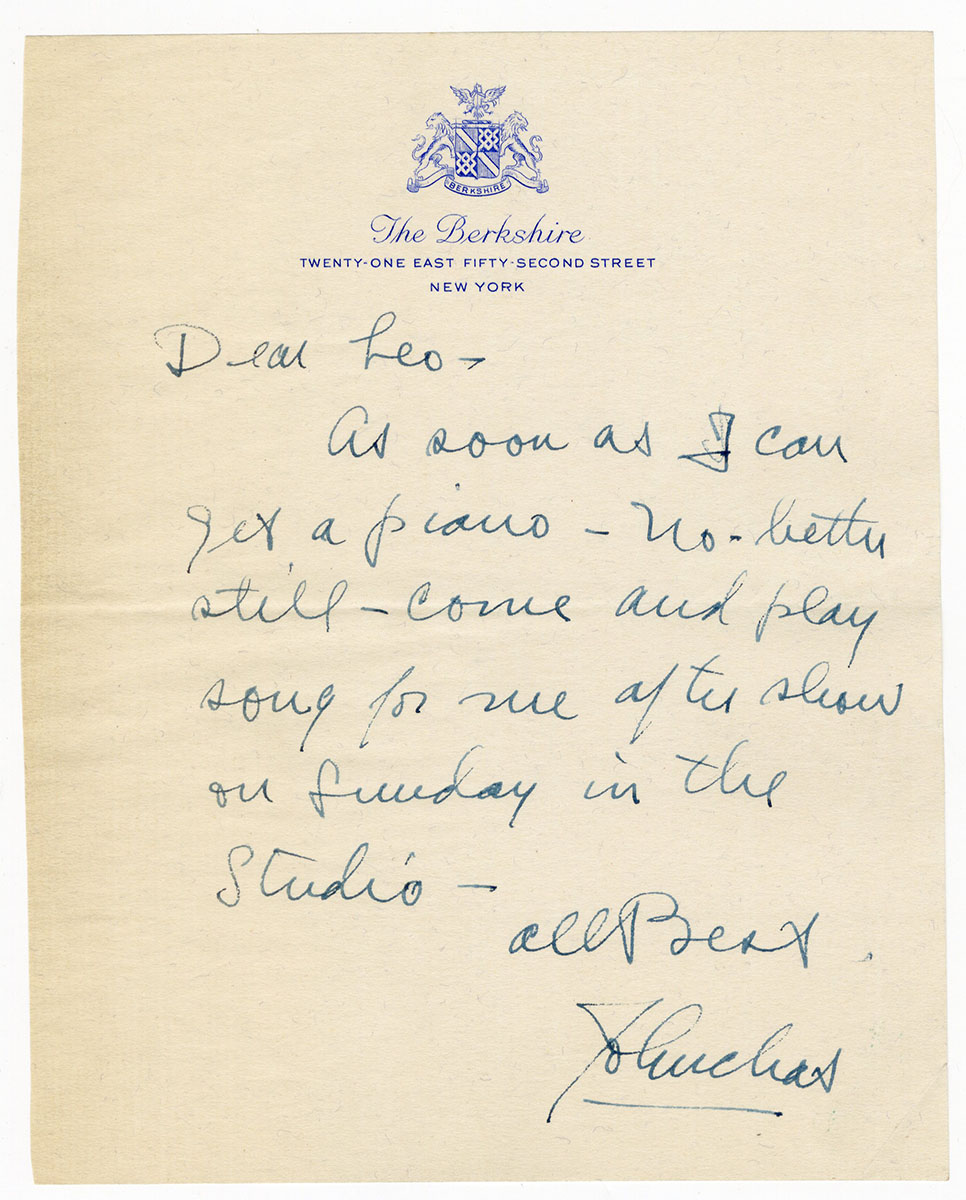 BERKSHIRE
The Berkshire
TWENTY-ONE EAST FIFTY-SECOND STREET
NEW YORK
Dear Leo -
As soon as I can
get a piano - No - better
still - come and play
song for me after show
on Sunday in the
Studio -
all Best
Johnchas